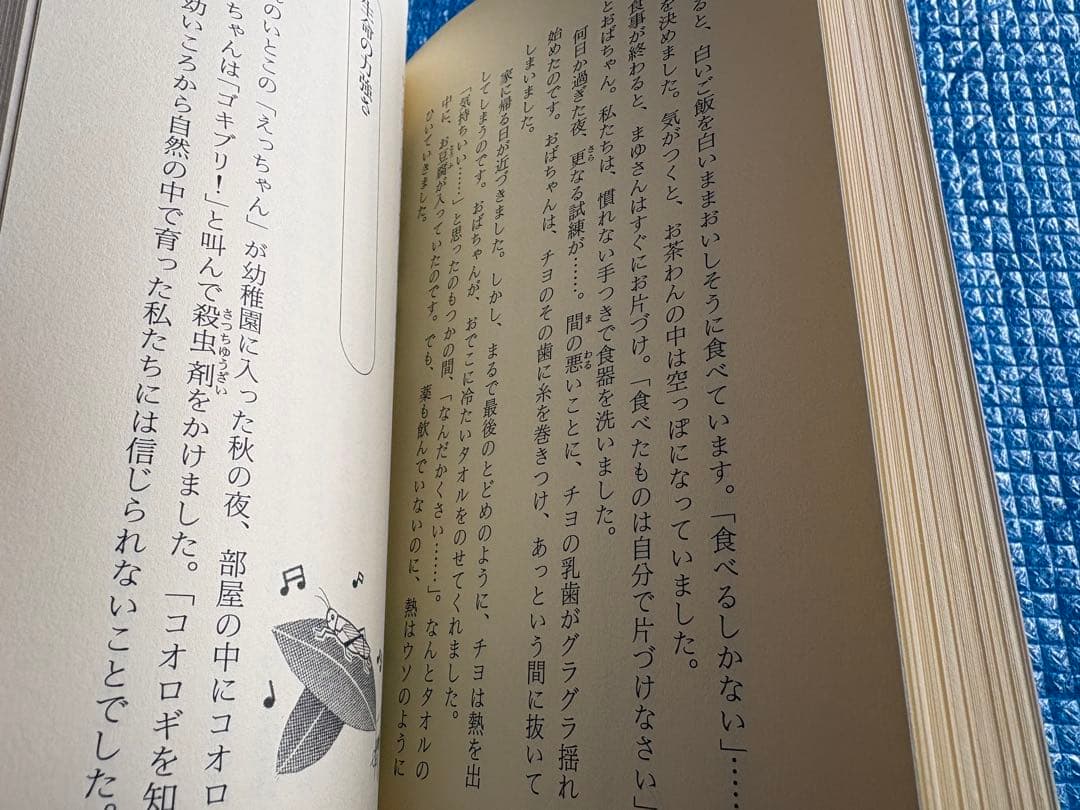 ると、白いご飯を白いままおいしそうに食べています。「食べるしかない」……
を決めました。気がつくと、お茶わんの中は空っぽになっていました。
食事が終わると、まゆさんはすぐにお片づけ。「食べたものは自分で片づけなさい」
とおばちゃん。私たちは、慣れない手つきで食器を洗いました。
何日か過ぎた夜、更なる試練が……。間の悪いことに、チヨの乳歯がグラグラ揺れ
始めたのです。おばちゃんは、チヨのその歯に糸を巻きつけ、あっという間に抜いて
しまいました。
家に帰る日が近づきました。しかし、まるで最後のとどめのように、チヨは熱を出
してしまうのです。おばちゃんが、おでこに冷たいタオルをのせてくれました。
「気持ちいい……」と思ったのもつかの間、「なんだかくさい……」。なんとタオルの
中に、お豆腐が入っていたのです。でも、薬も飲んでいないのに、熱はウソのように
ひいていきました。
生命の力強さ
のいとこの「えっちゃん」が幼稚園に入った秋の夜、部屋の中にコオロ
ちゃんは「ゴキブリ!」と叫んで殺虫剤をかけました。「コオロギを知
幼いころから自然の中で育った私たちには信じられないことでした。